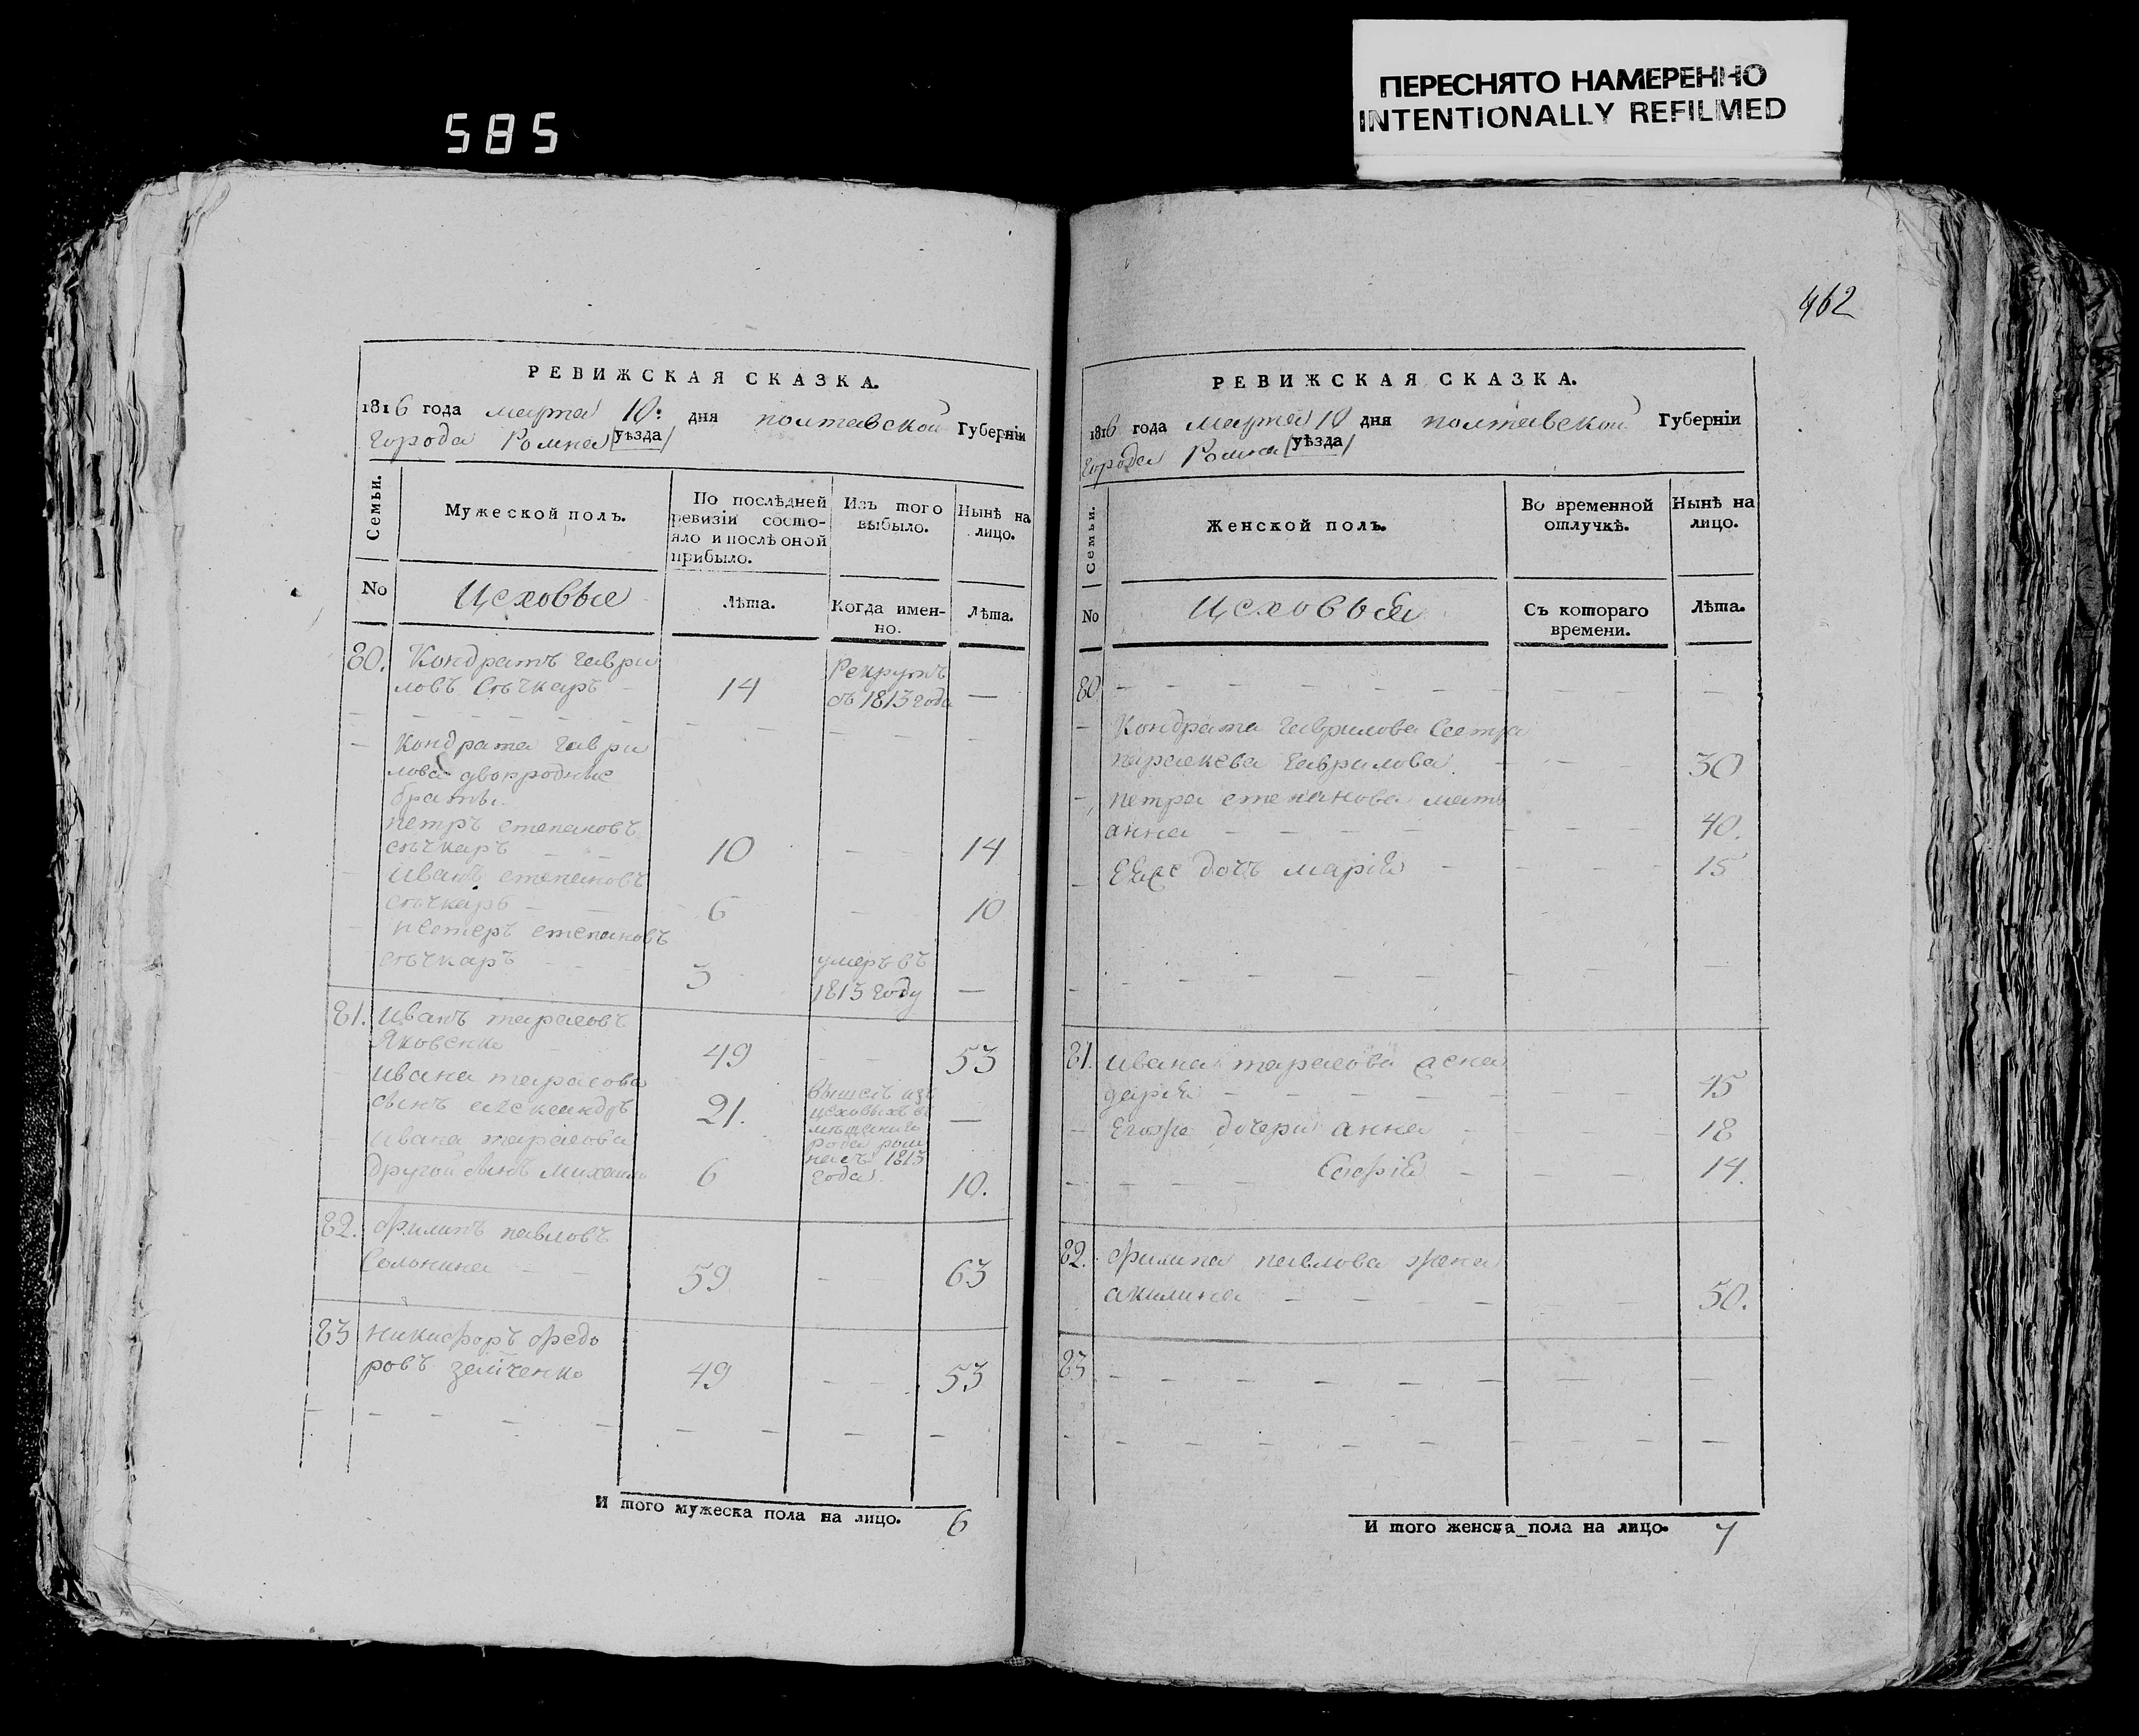 ПЕРЕСНЯТО НАМЕРЕННО
INTENTIONALLY REFILMED
585
462
РЕВИЖСКАЯ СКАЗКА.
1816 года марта 10: дня полтавской Губерніи
города Ромна уѣзда
Семьи.
Мужеской полъ.
По послѣдней ревизіи состо-
яло и послѣ оной прибыло.
Изъ того выбыло.
Нынѣ на лицо.
No
Цеховые
Лѣта.
Когда имен-
но.
Лѣта.
80. Кондратъ Гаври
ловъ Сѣчкаръ 14 Рекрутъ
съ 1813 года —
Кондрата Гаври
лова двоюродные
братья
петръ степановъ
сѣчкаръ 10 14
Иванъ степановъ
сѣчкаръ 6 10
нестеръ степановъ
сѣчкаръ 3 умеръ въ
1813 году —
81. Иванъ тарасовъ
Яковенко 49 53
Ивана тарасова
сынъ александръ 21. вышелъ изъ
цеховыхъ въ
мѣщане
города ром
на съ 1813
года —
Ивана тарасова
другой сынъ михаилъ 6 10.
82. Филипъ павловъ
59 63
83 никифоръ федо
ровъ 49 53
И того мужеска пола на лицо. 6
РЕВИЖСКАЯ СКАЗКА.
1816 года марта 10 дня полтавской Губерніи
города Ромна уѣзда
Семьи.
Женской полъ.
Во временной
отлучкѣ.
Нынѣ на
лицо.
No
Цеховыя
Съ котораго
времени.
Лѣта.
80
Кондрата Гаврилова Сестра
параскева Гаврилова 30
петра степанова мать
анна 40.
Ея дочь марія 15
81. Ивана тарасова жена
дарья 45
Егоже дочери анна 18
Софія 14.
82. Филипа павлова жена
акилина 50.
83
И того женска пола на лицо. 7